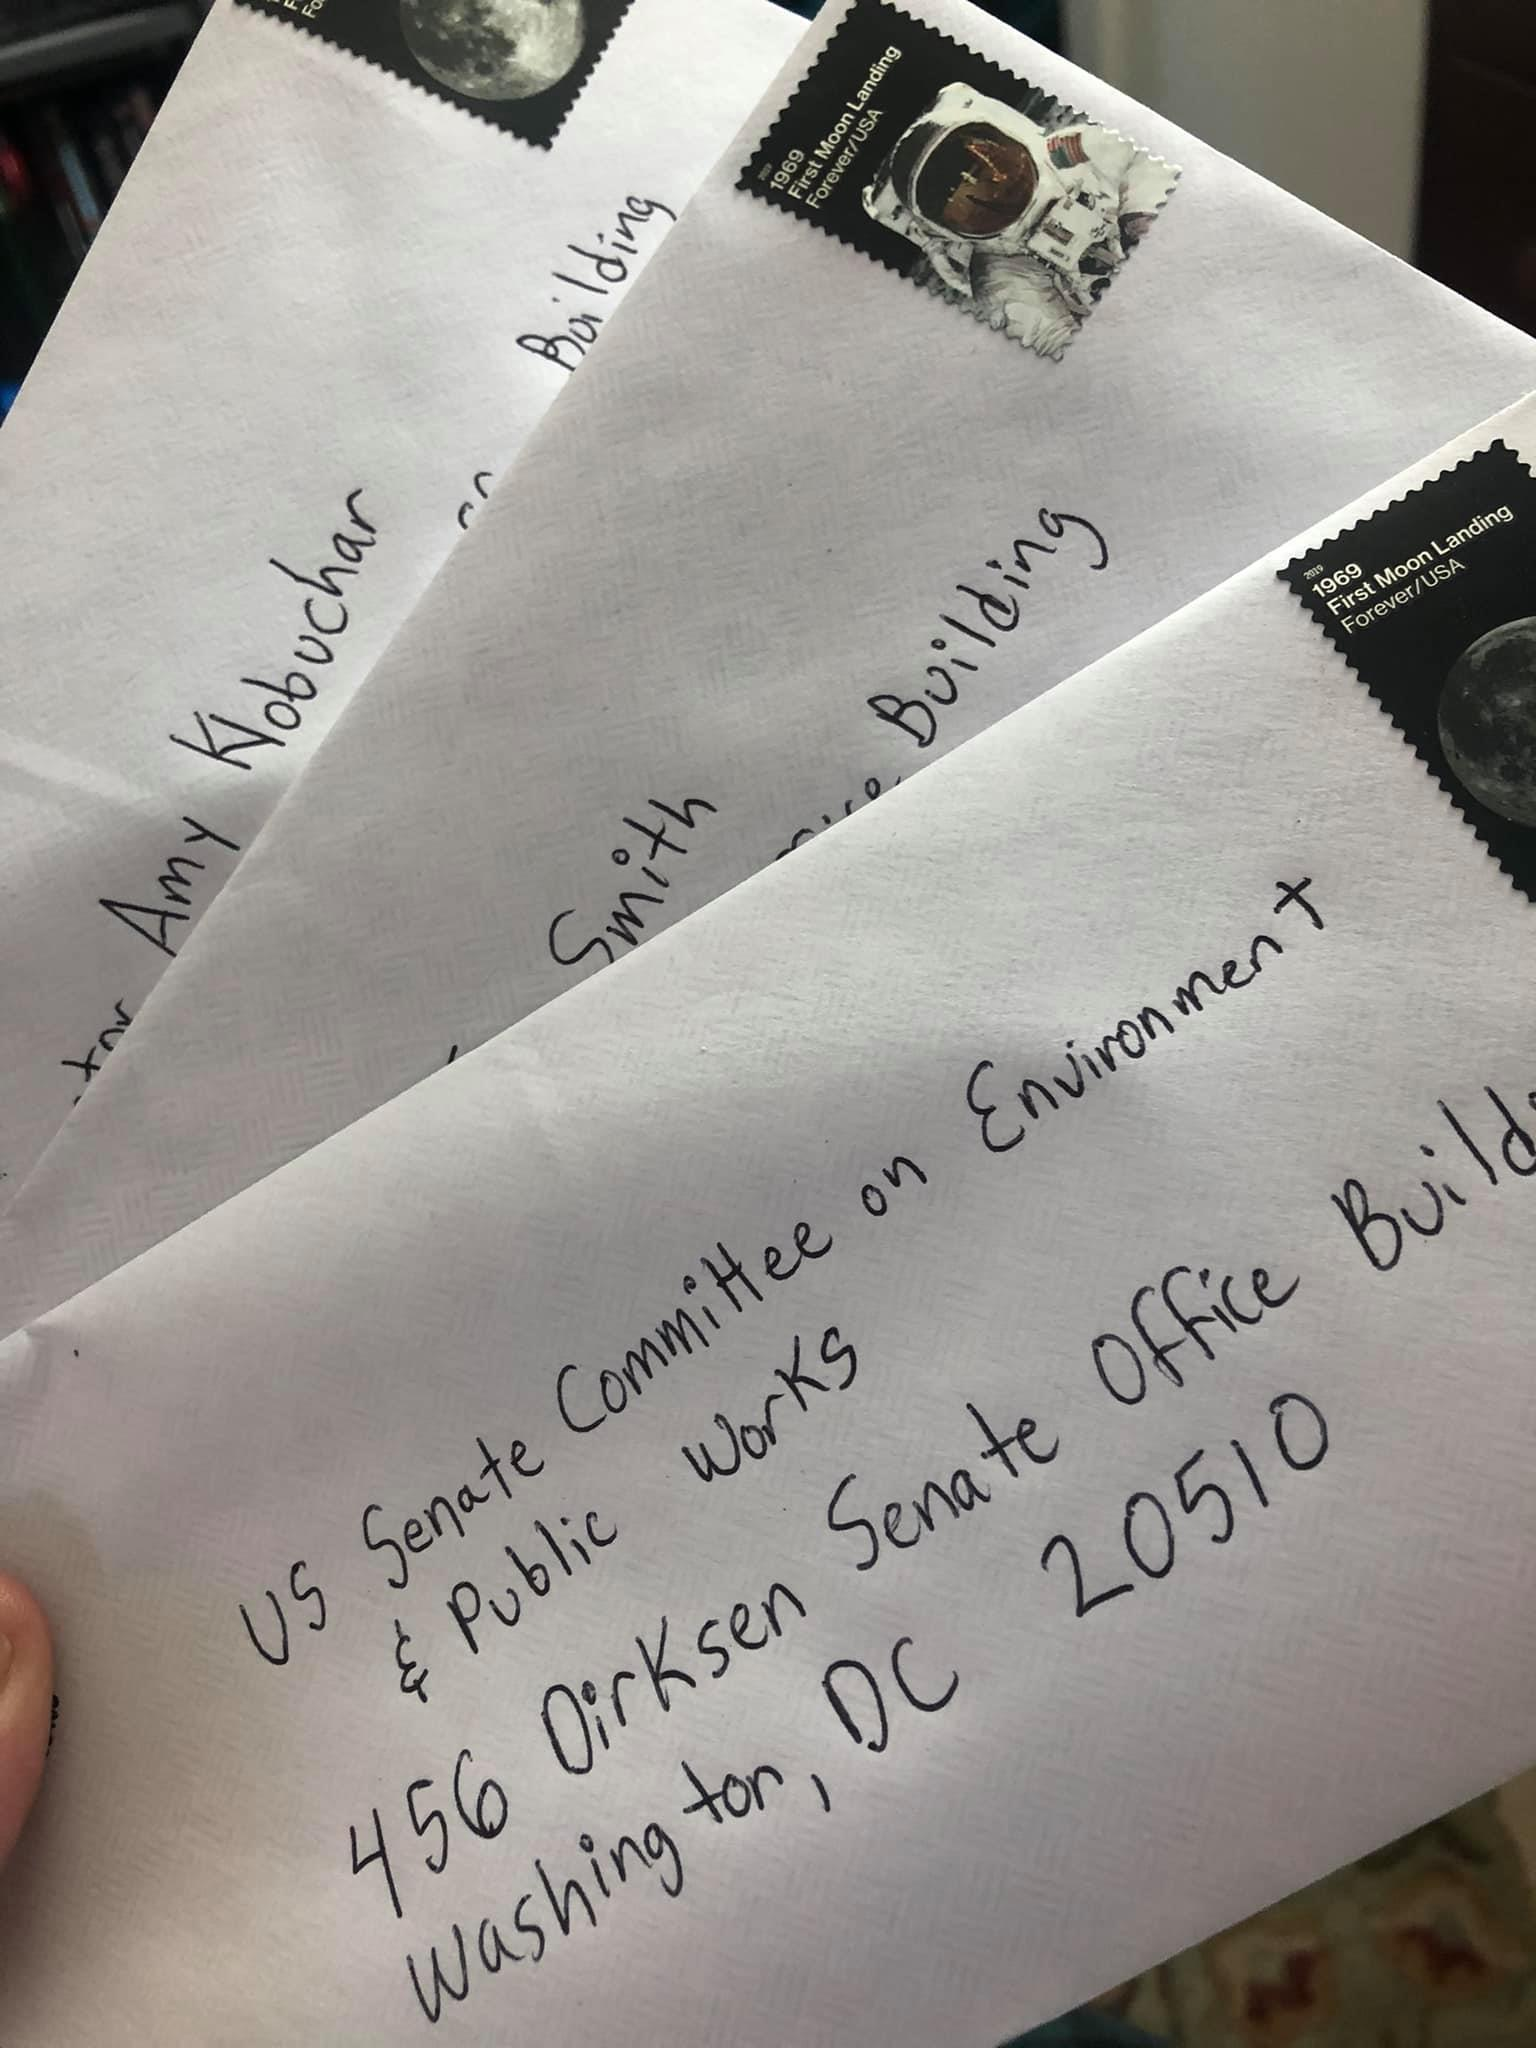 Fo
Building
Amy Klobuchar
2019
1969
First Moon Landing
Forever/USA
Building
Smith
2019
1969
First Moon Landing
Forever/USA
US Senate Committee on Environment
& Public Works
456 Dirksen Senate Office Build
Washington, DC 20510